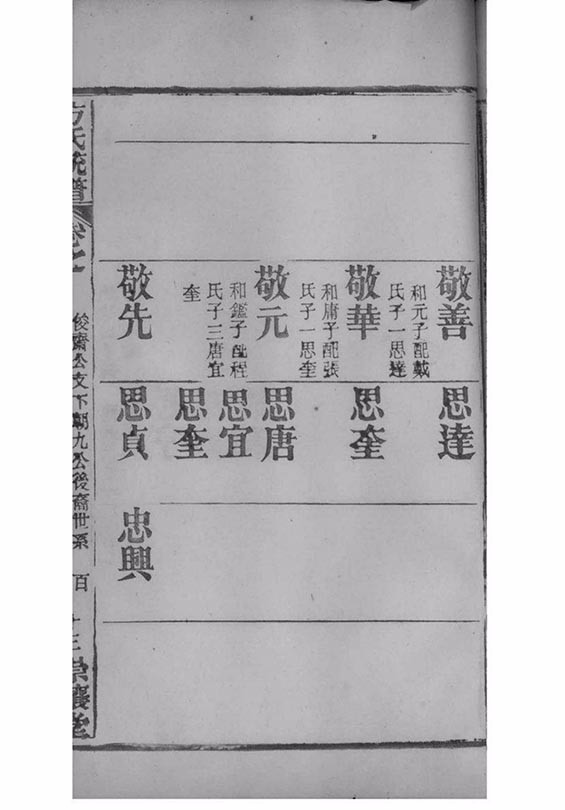 敬善
和元子配戴
氏子一思達
敬華
和庸子配張
氏子一思奎
敬元
和鑑子配程
氏子三唐宜
奎
敬先
思達
思奎
思唐
思宜
思奎
思貞
忠興
方氏統譜
卷之
俊齋公支下朝九公後裔世系
百
十三
崇讓堂